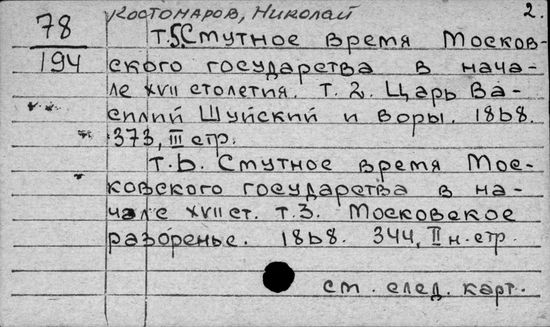 Костомаров, Николай 2.
78
194
т.5. Смутное время Москов-
ского государства в нача-
ле XVII столетия. Т. 2. Царь Ва-
силий Шуйский и воры. 1868.
373, III стр.
т.6. Смутное время Мос-
ковского государства в на-
чале XVII ст. Т.З. Московское
разоренье. 1868. 344, II н.стр.
см. след. карт.